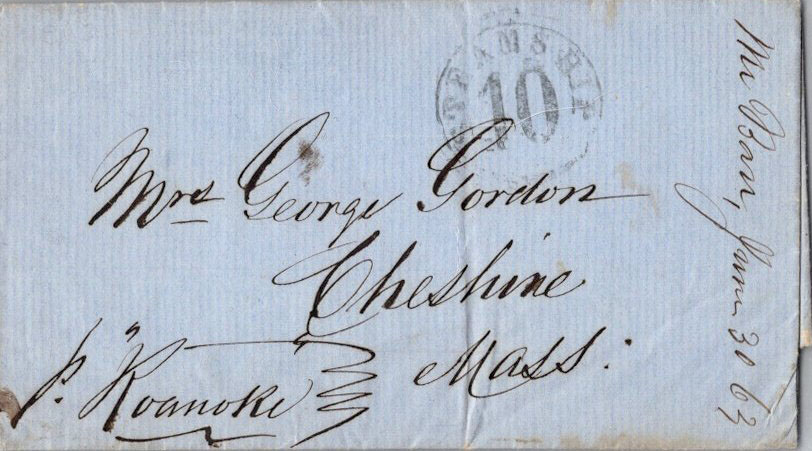 STEAMSHIP
10
Mrs George Gordon
Cheshire
Mass:
p. "Roanoke
June 30 63